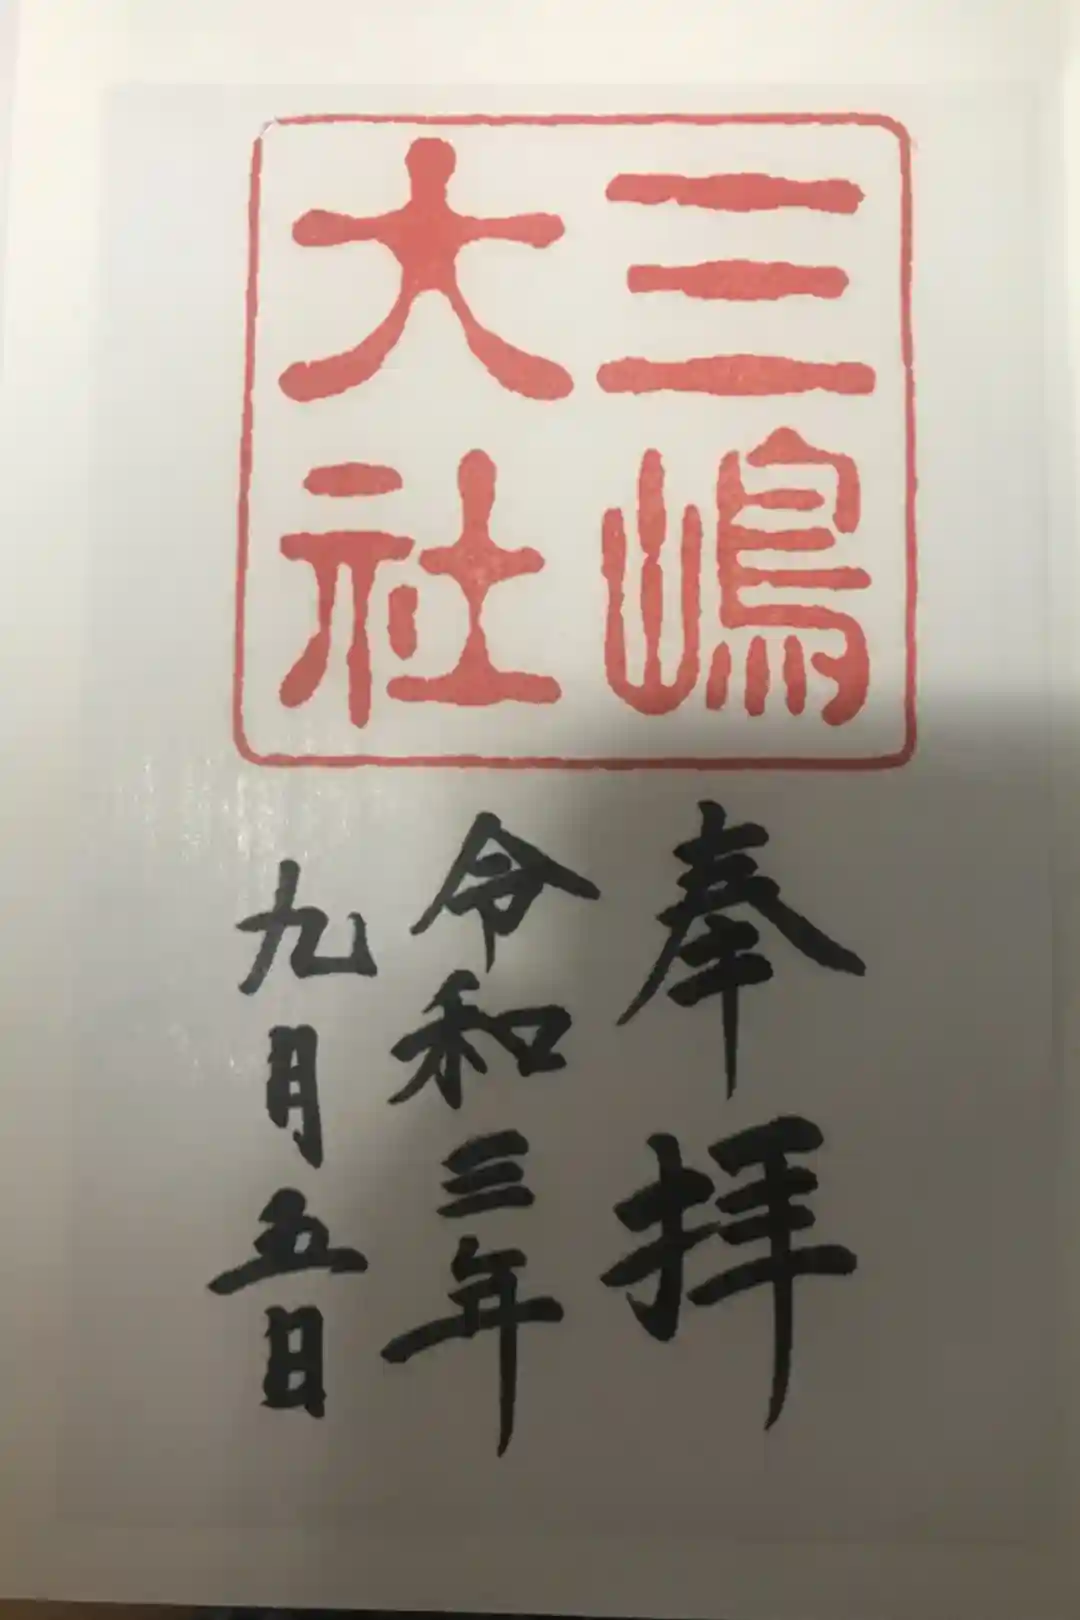 三嶋
大社
奉拝
令和三年
九月五日